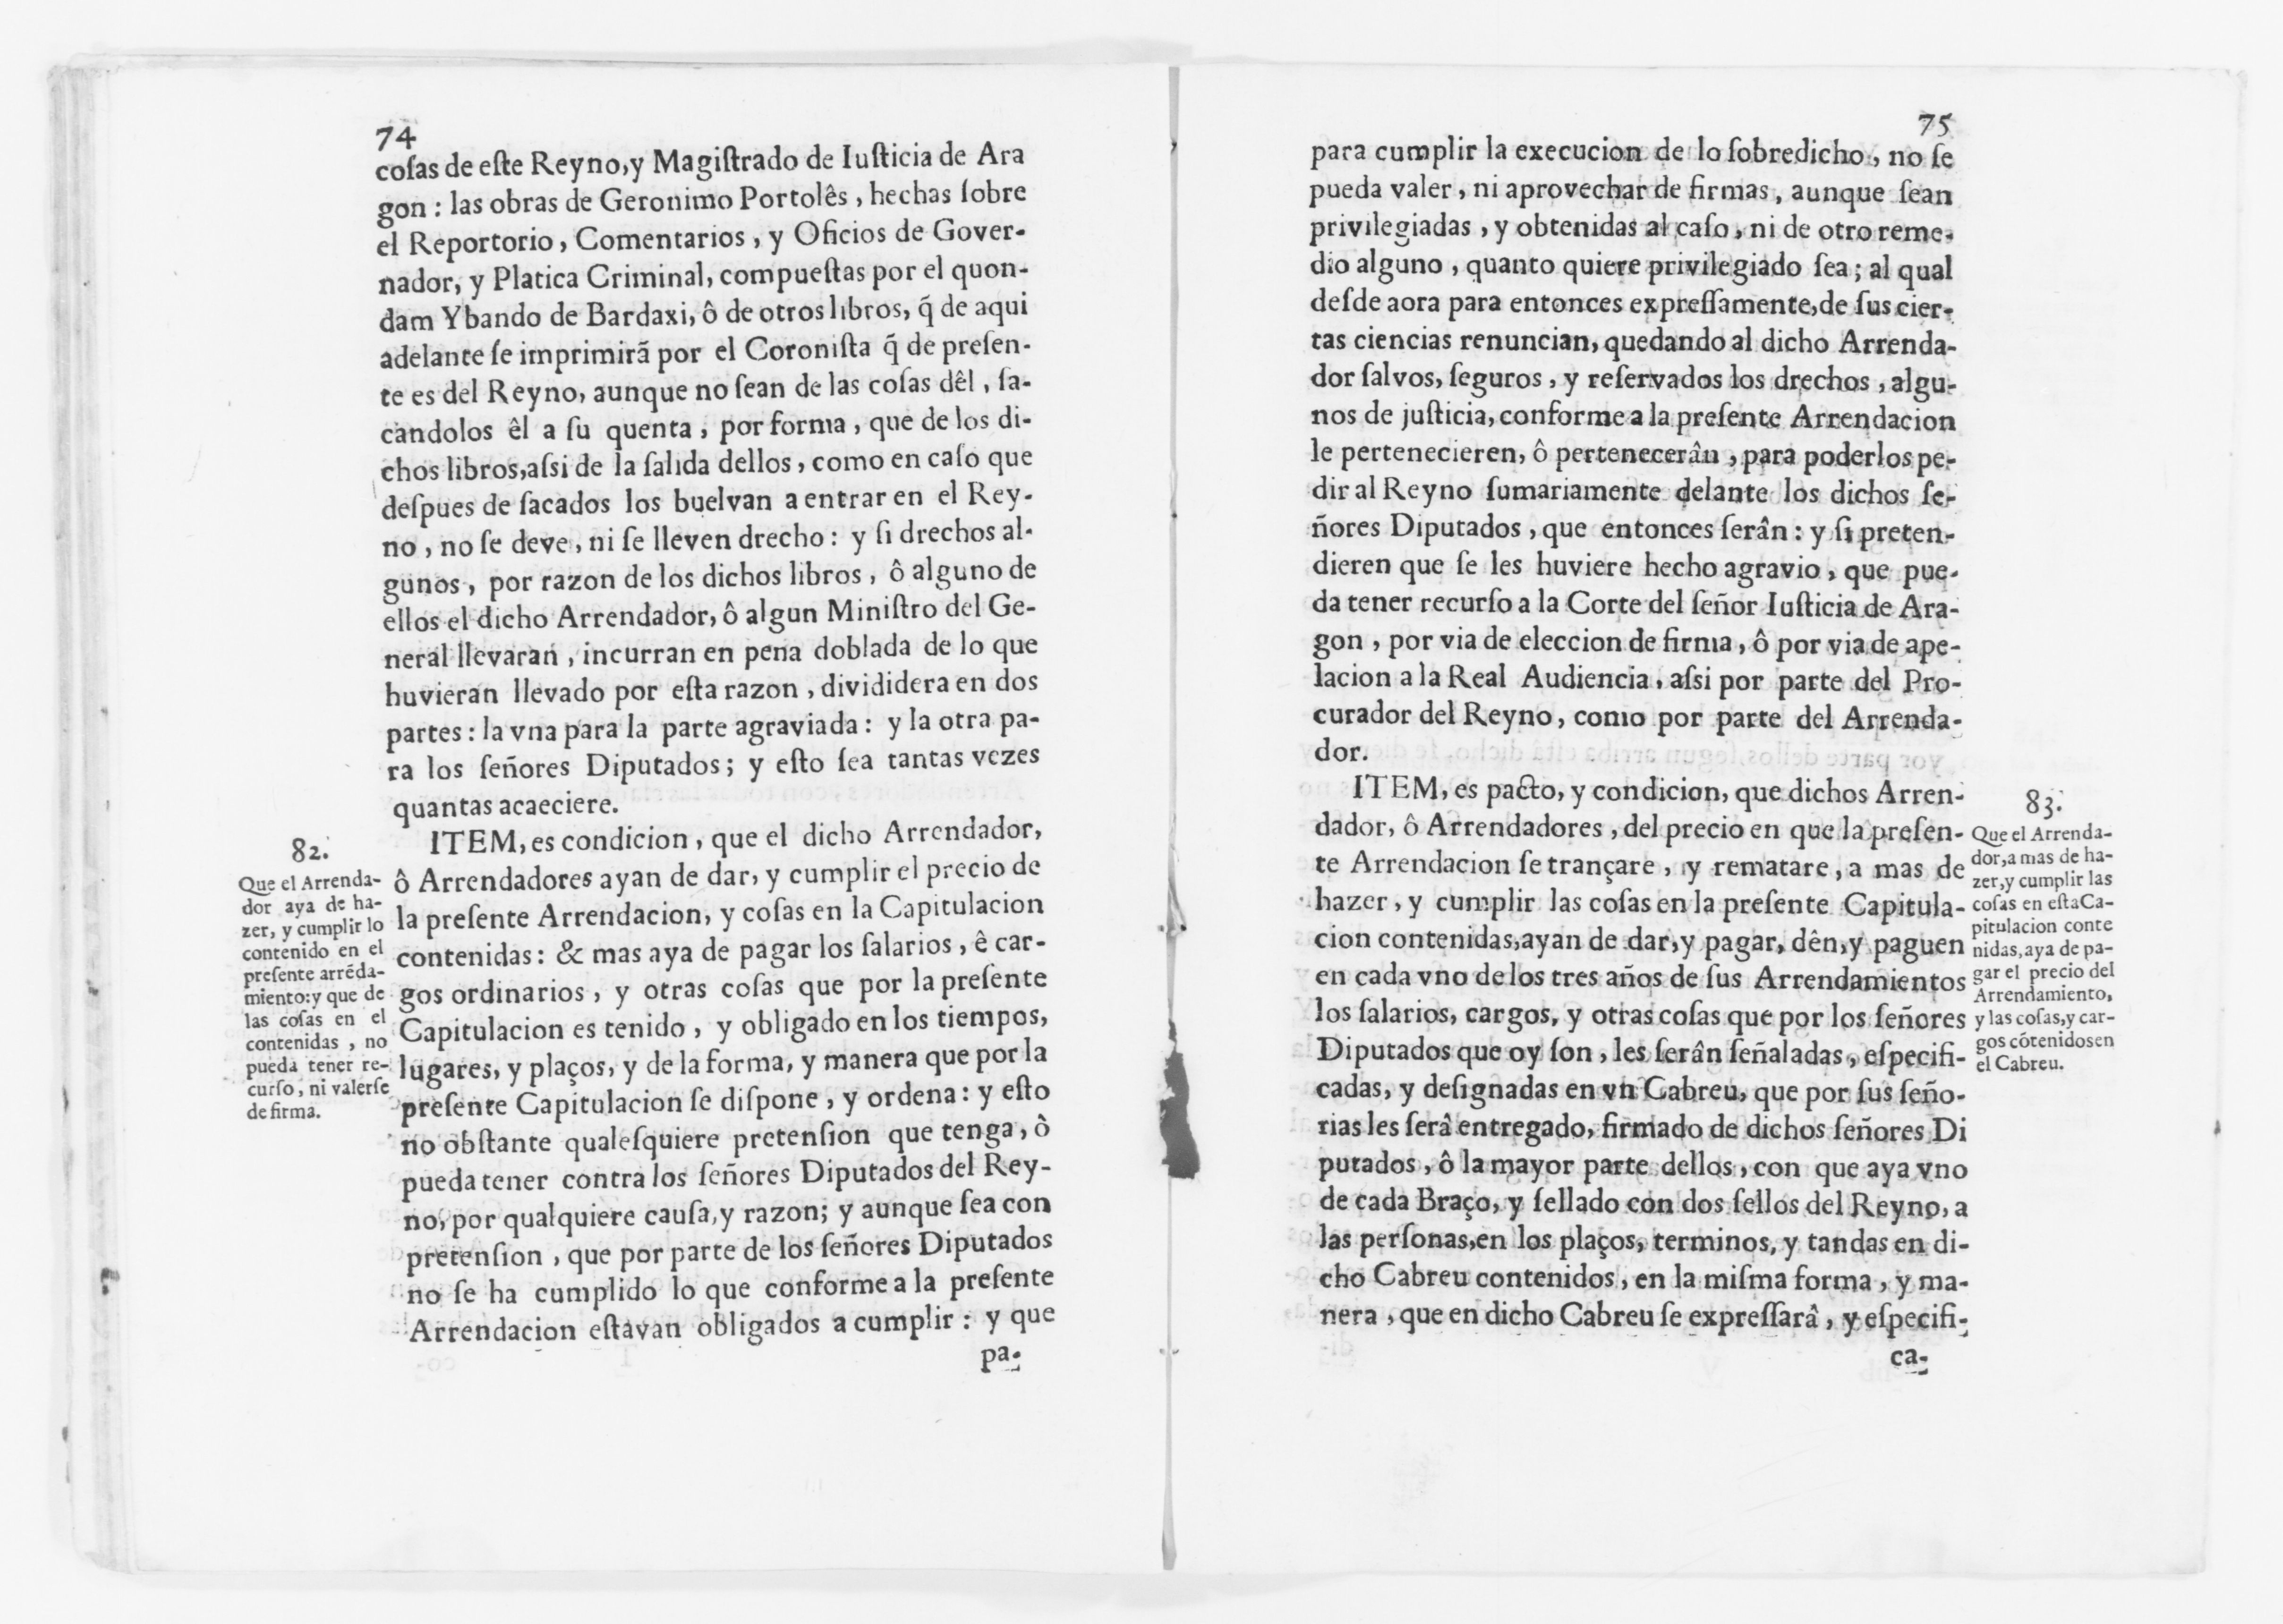 74
coſas de eſte Reyno, y Magiſtrado de Iuſticia de Ara
gon : las obras de Geronimo Portolês , hechas ſobre
el Reportorio , Comentarios , y Oficios de Gover-
nador, y Platica Criminal, compueſtas por el quon-
dam Ybando de Bardaxi, ô de otros libros, q̃ de aqui
adelante ſe imprimirã por el Coroniſta q̃ de preſen-
te es del Reyno, aunque no ſean de las coſas dêl , ſa-
candolos êl a ſu quenta , por forma , que de los di-
chos libros,aſsi de la ſalida dellos , como en caſo que
deſpues de ſacados los buelvan a entrar en el Rey-
no , no ſe deve , ni ſe lleven drecho : y ſi drechos al-
gunos , por razon de los dichos libros , ô alguno de
ellos el dicho Arrendador, ô algun Miniſtro del Ge-
neral llevaran , incurran en pena doblada de lo que
huvieran llevado por eſta razon , divididera en dos
partes : la vna para la parte agraviada : y la otra pa-
ra los ſeñores Diputados ; y eſto ſea tantas vezes
quantas acaeciere.
82.
Que el Arrenda-
dor aya de ha-
zer, y cumplir lo
contenido en el
preſente arrẽda-
miento:y que de
las coſas en el
contenidas , no
pueda tener re-
curſo , ni valerſe
de firma.
ITEM, es condicion , que el dicho Arrendador,
ô Arrendadores ayan de dar, y cumplir el precio de
la preſente Arrendacion, y coſas en la Capitulacion
contenidas : & mas aya de pagar los ſalarios , ê car-
gos ordinarios , y otras coſas que por la preſente
Capitulacion es tenido , y obligado en los tiempos,
lugares, y plaços, y de la forma, y manera que por la
preſente Capitulacion ſe diſpone , y ordena : y eſto
no obſtante qualeſquiere pretenſion que tenga , ô
pueda tener contra los ſeñores Diputados del Rey-
no, por qualquiere cauſa, y razon; y aunque ſea con
pretenſion , que por parte de los ſeñores Diputados
no ſe ha cumplido lo que conforme a la preſente
Arrendacion eſtavan obligados a cumplir : y que
pa-
75
para cumplir la execucion de lo ſobredicho , no ſe
pueda valer , ni aprovechar de firmas , aunque ſean
privilegiadas , y obtenidas al caſo , ni de otro reme-
dio alguno , quanto quiere privilegiado ſea ; al qual
deſde aora para entonces expreſſamente,de ſus cier-
tas ciencias renuncian, quedando al dicho Arrenda-
dor ſalvos, ſeguros , y reſervados los drechos , algu-
nos de juſticia, conforme a la preſente Arrendacion
le pertenecieren, ô pertenecerân , para poderlos pe-
dir al Reyno ſumariamente delante los dichos ſe-
ñores Diputados , que entonces ſerân : y ſi preten-
dieren que ſe les huviere hecho agravio , que pue-
da tener recurſo a la Corte del ſeñor Iuſticia de Ara-
gon , por via de eleccion de firma , ô por via de ape-
lacion a la Real Audiencia , aſsi por parte del Pro-
curador del Reyno , como por parte del Arrenda-
dor.
ITEM, es pacto, y condicion, que dichos Arren-
dador, ô Arrendadores , del precio en que la preſen-
te Arrendacion ſe trançare , y rematare , a mas de
hazer , y cumplir las coſas en la preſente Capitula-
cion contenidas,ayan de dar,y pagar, dên,y paguen
en cada vno de los tres años de ſus Arrendamientos
los ſalarios, cargos, y otras coſas que por los ſeñores
Diputados que oy ſon , les ſerân ſeñaladas , eſpecifi-
cadas, y deſignadas en vn Cabreu, que por ſus ſeño-
rias les ſerâ entregado, firmado de dichos ſeñores Di
putados , ô la mayor parte dellos , con que aya vno
de cada Braço, y ſellado con dos ſellos del Reyno, a
las perſonas,en los plaços, terminos, y tandas en di-
cho Cabreu contenidos , en la miſma forma , y ma-
nera , que en dicho Cabreu ſe expreſſarâ , y eſpecifi-
ca-
83.
Que el Arrenda-
dor,a mas de ha-
zer,y cumplir las
coſas en eſtaCa-
pitulacion conte
nidas, aya de pa-
gar el precio del
Arrendamiento,
y las coſas,y car-
gos cótenidosen
el Cabreu.